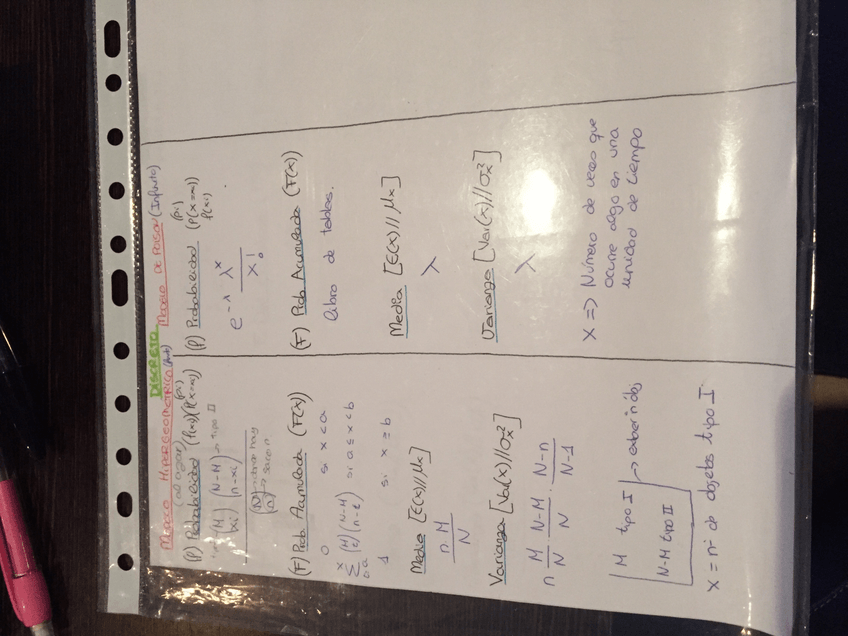 DISCRETO
MODELO HIPERGEOMETRICO (finito)
(al azar)
(P) Probabilidad (f(xi)) (P(x=xi)) (pi)
(M) (N-M) → tipo II
(xi) (n-xi)
(N)
(n) → saco n
(F) Prob. Acumulada (F(x))
0 si x<a
x
Σ (M) (N-M) si a≤x<b
(t) (n-t)
1 si x≥b
Media [E(x)//μx]
n·M
N
Varianza [Var(x)//σx²]
n M/N · N-M/N · N-n/N-1
M tipo I
N-M tipo II
→ extraer n obj
X = nº de objetos tipo I
MODELO DE POISON (Infinito)
(P) Probabilidad (P(x=xi)) (pi) f(xi)
e^-λ λ^x
x!
(F) Prob Acumulada (F(x))
Libro de tablas.
Media [E(x)//μx]
λ
Varianza [Var(x)//σx²]
λ
X => Número de veces que
ocurre algo en una
unidad de tiempo